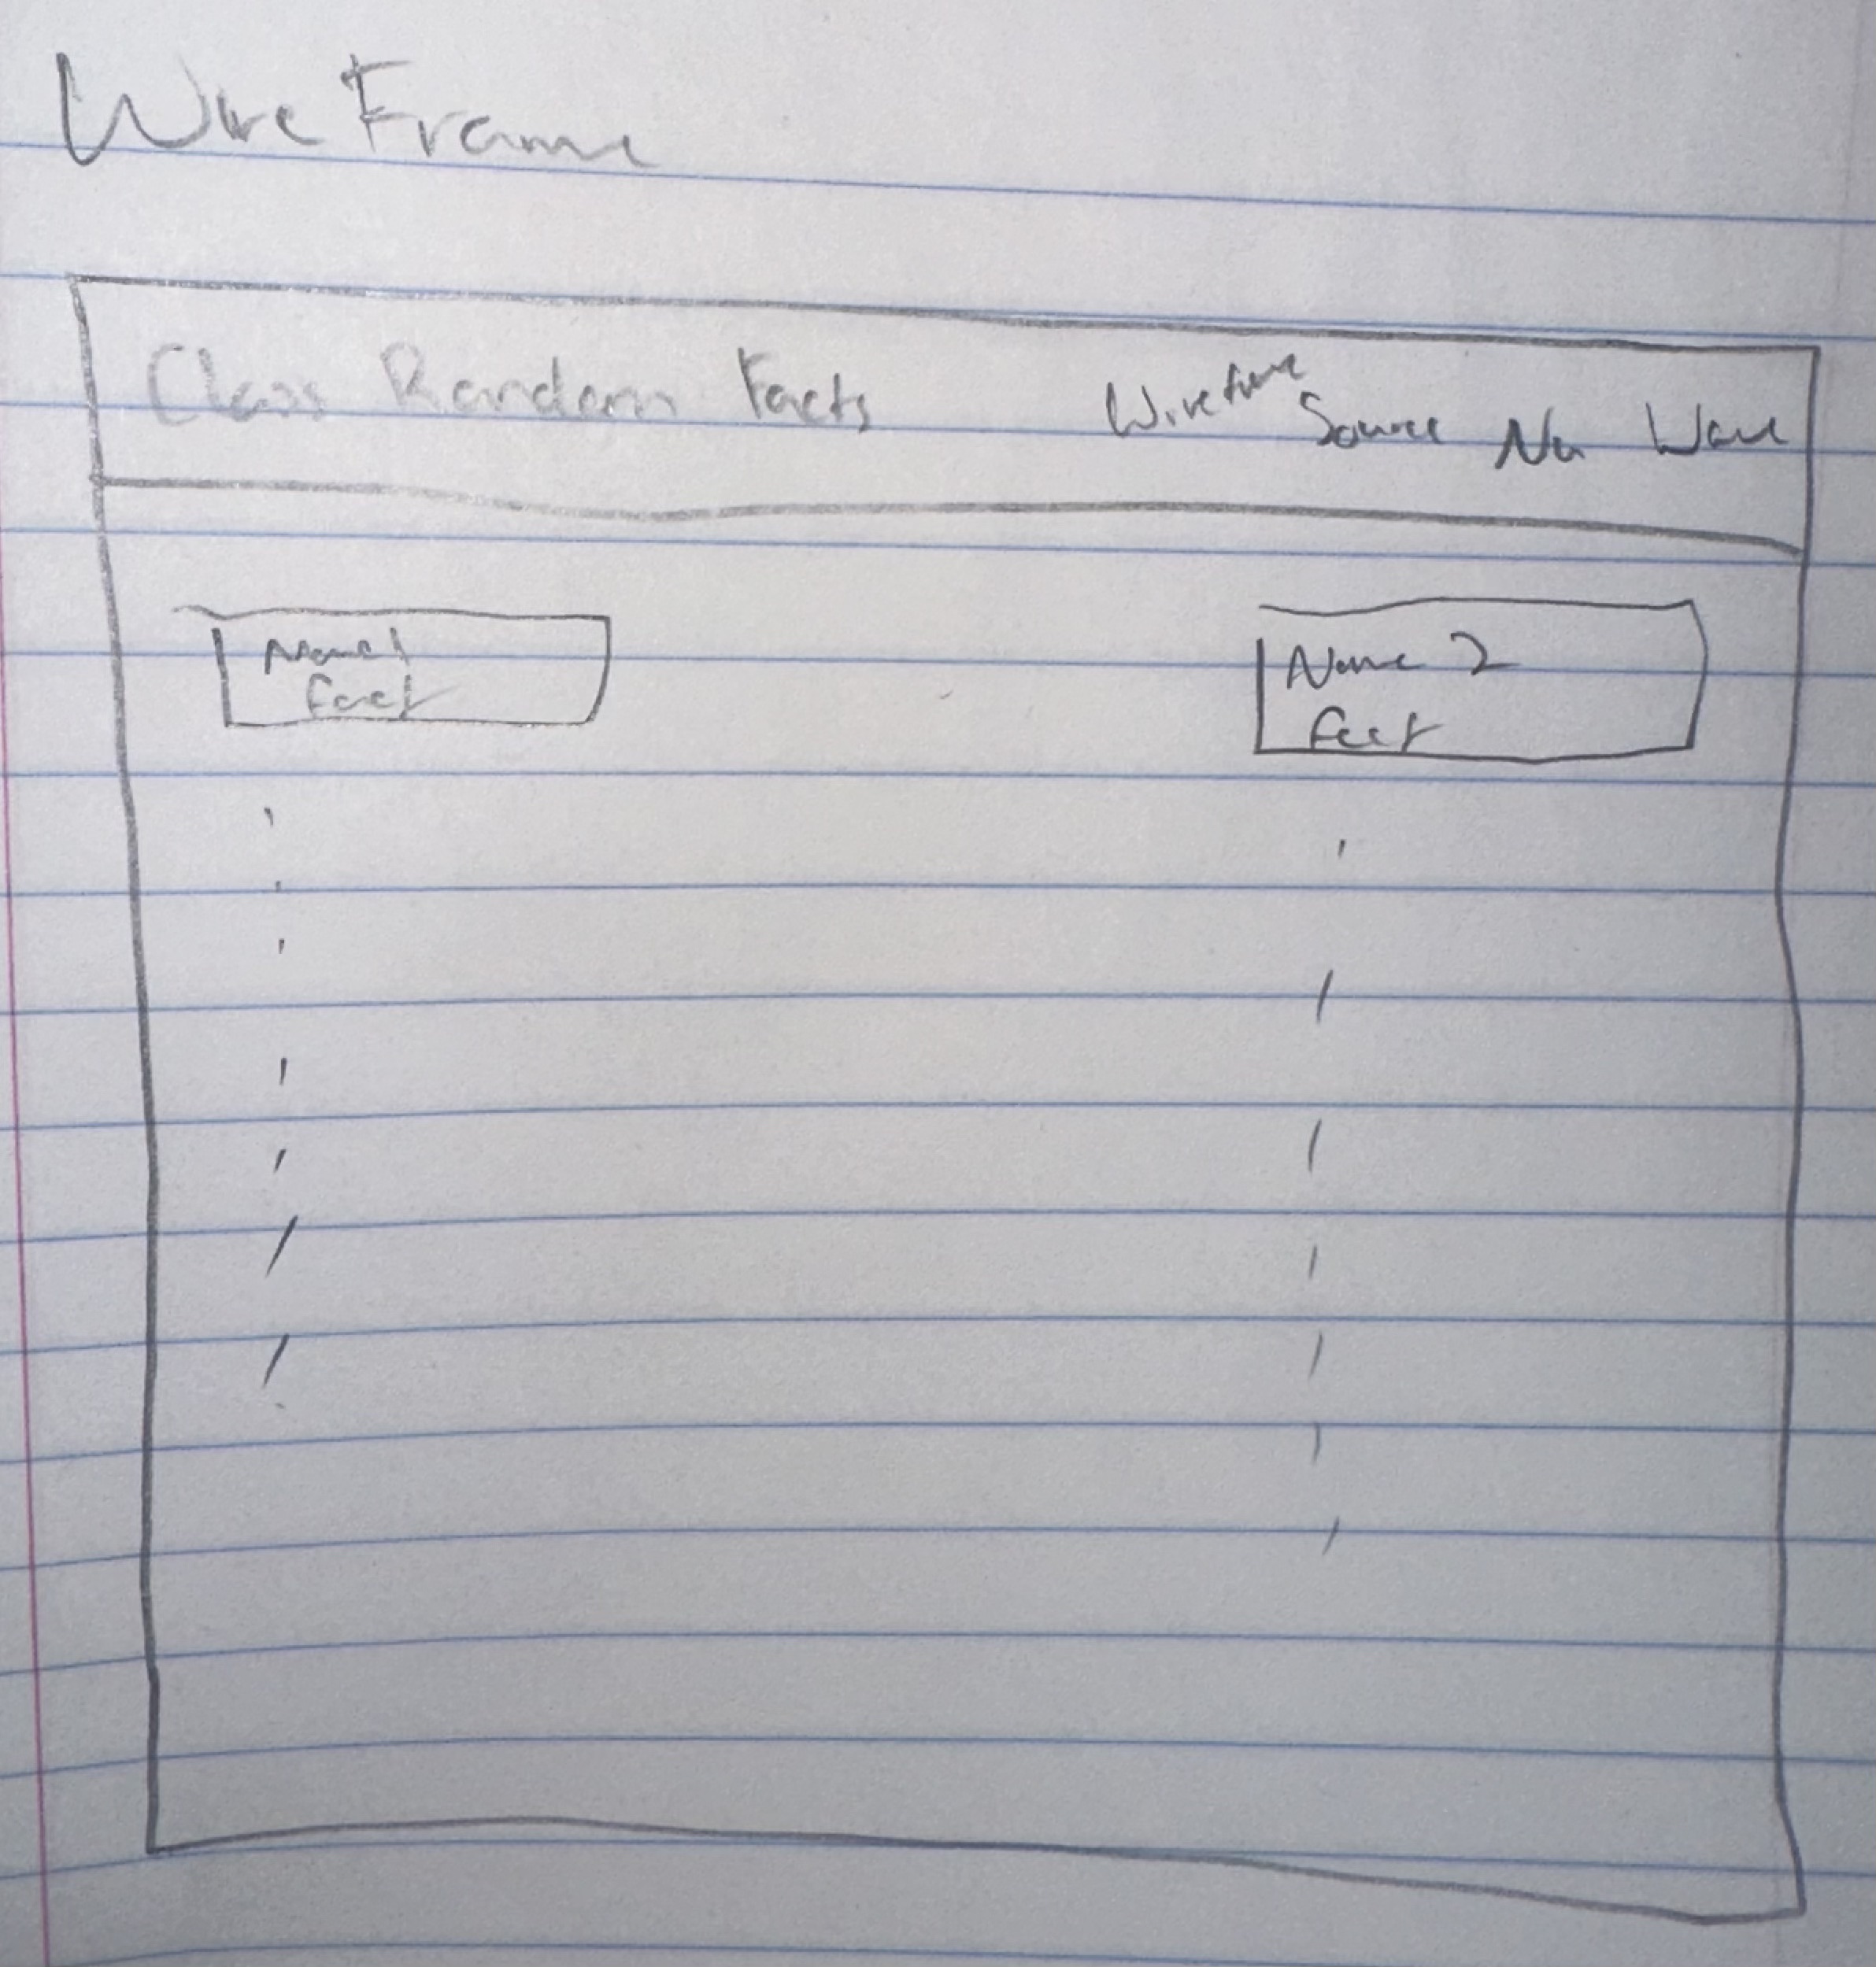 Wire Frame
Class Random Facts Wireframe Source Nu Wave
Name 1
fact
Name 2
fact